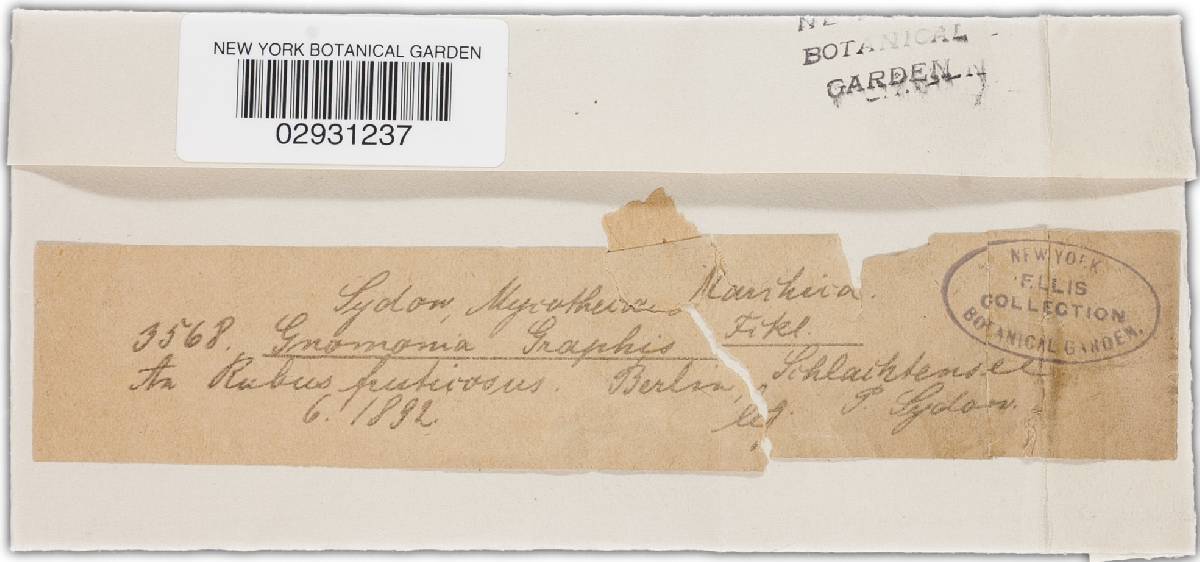 NEW YORK BOTANICAL GARDEN
02931237
BOTANICAL
GARDEN
Sydow, Mycotheca Marchica.
3568. Gnomonia Graphis Fckl.
An Rubus fruticosus. Berlin, Schlachtensee
6. 1892. leg. P. Sydow.
NEW YORK
ELLIS
COLLECTION
BOTANICAL GARDEN.